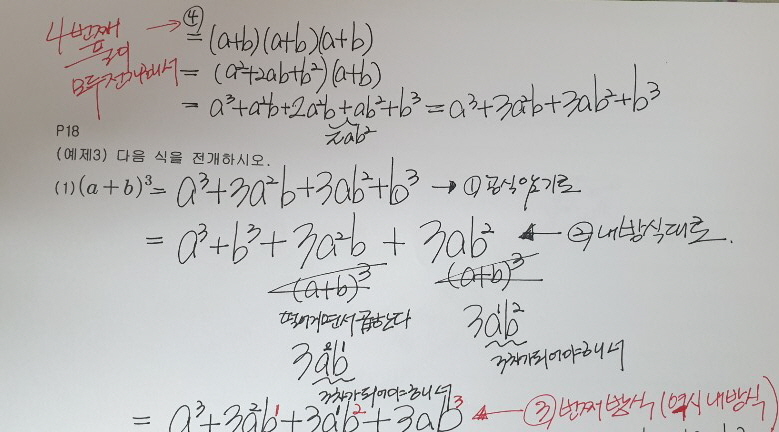 4번째 → ④
풀이 = (a+b)(a+b)(a+b)
모두 전개해서 = (a²+2ab+b²)(a+b)
= a³+a²b+2a²b+ab²+b³ = a³+3a²b+3ab²+b³
2ab²
P18
(예제3) 다음 식을 전개하시오.
(1) (a+b)³ = a³+3a²b+3ab²+b³ → ① 공식암기로
= a³+b³+3a²b + 3ab² ← ② 내방식대로.
(a+b)³ (a+b)³
떨어지면서 곱한다 3a¹b²
3차가 되어야하니
3a²b¹
3차가 되어야하니
= a³+3a²b¹+3a¹b²+3ab³ ← ③ 번째방식 (역시 내방식)